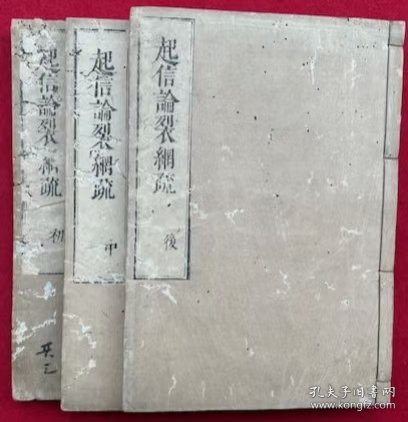 起信論裂網疏
後
起信論裂網疏
中
起信論裂網疏
初
共三
孔夫子旧书网